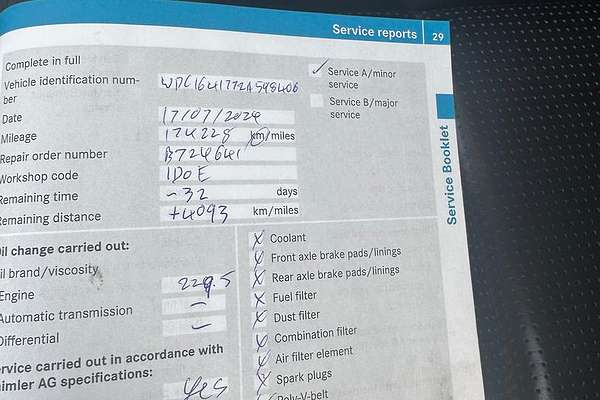 Service reports 29
Complete in full
Vehicle identification num-
ber WDC1641772A598406
Date 17/07/2024
Mileage 174228 km/miles
Repair order number B724641
Workshop code 1D0E
Remaining time -32 days
Remaining distance +4093 km/miles
✓ Service A/minor
service
Service B/major
service
Service Booklet
il change carried out:
il brand/viscosity
Engine 229.5
Automatic transmission –
Differential –
ervice carried out in accordance with
aimler AG specifications: Yes
X Coolant
X Front axle brake pads/linings
X Rear axle brake pads/linings
X Fuel filter
X Dust filter
X Combination filter
X Air filter element
X Spark plugs
Poly-V-belt